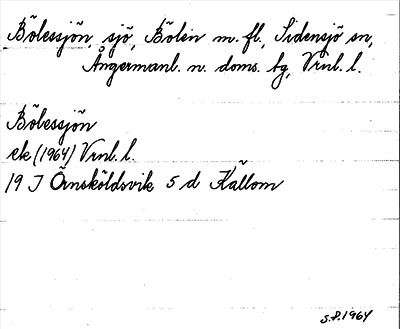 Bölessjön, sjö, Bölen m.fl., Sidensjö sn,
Ångermanl. n. doms. bg, Vrnl. l.
Bölessjön
ek (1964) Vrnl. l.
19 J Örnsköldsvik 5 d Källom
S.P. 1964